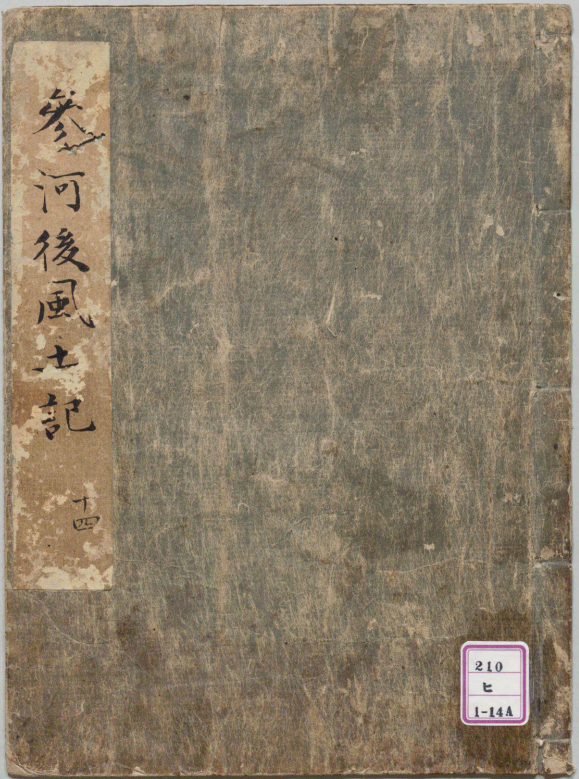 參河後風土記
十四
210
ヒ
1-14A